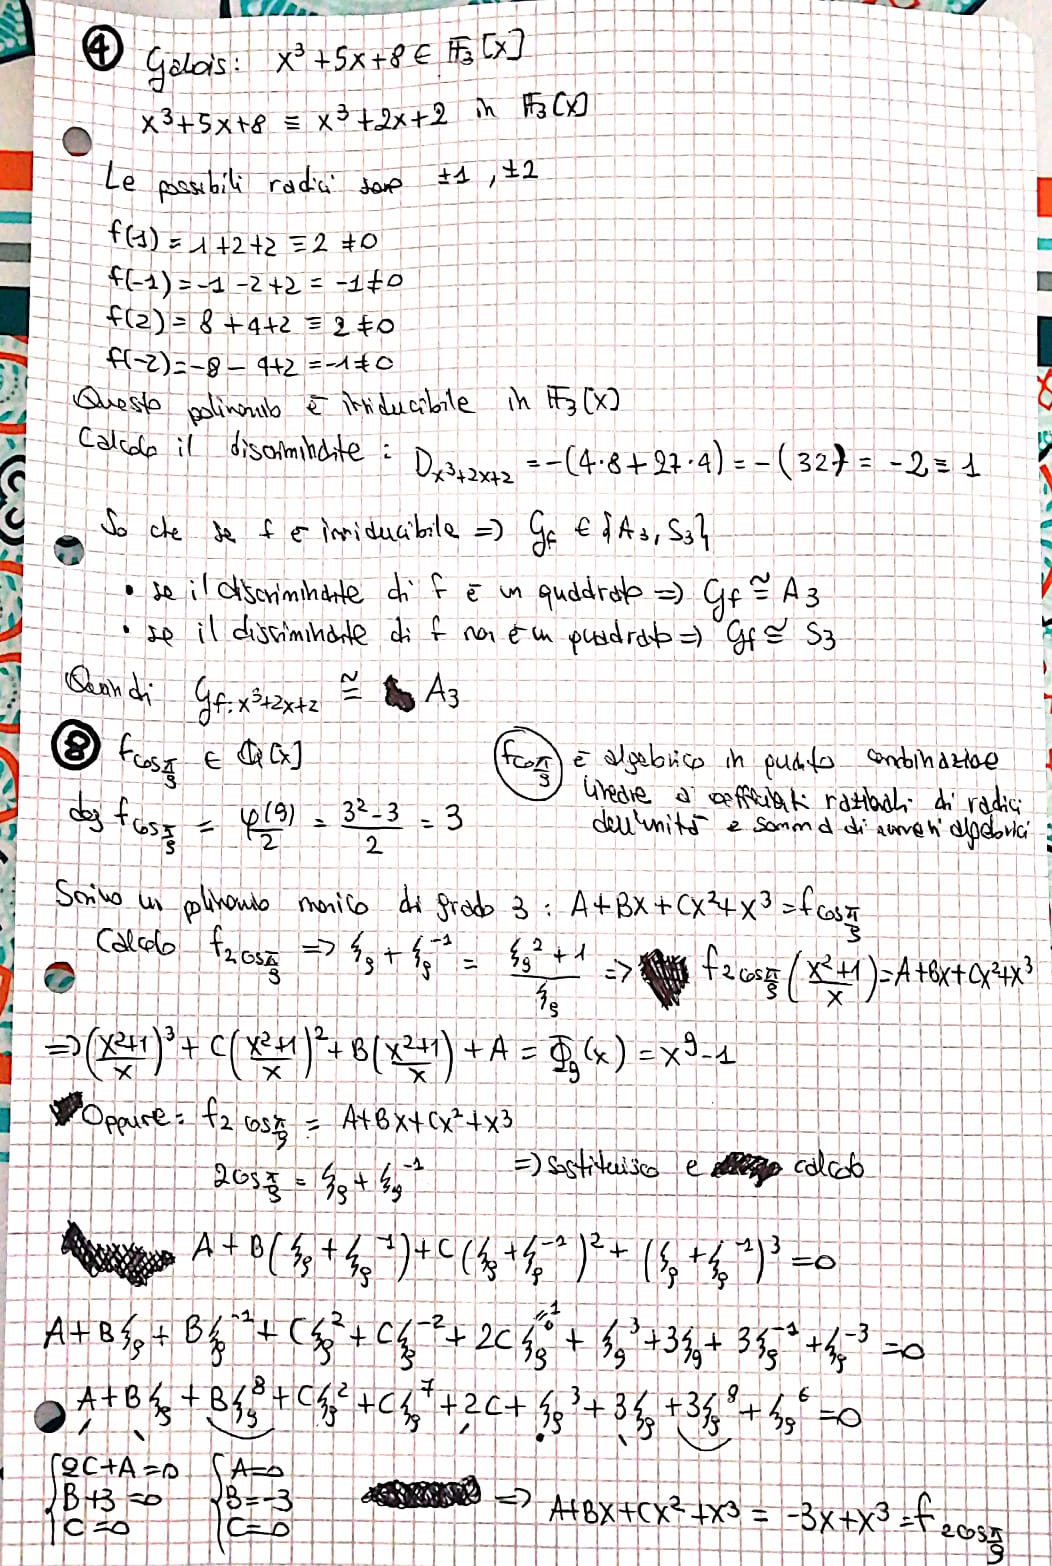 ④ Galois: x³+5x+8 ∈ F₃[x]
x³+5x+8 ≡ x³+2x+2 in F₃[x]
Le possibili radici sono ±1, ±2
f(1) = 1+2+2 ≡ 2 ≠0
f(-1) = -1 -2+2 = -1≠0
f(2) = 8+4+2 ≡ 2 ≠0
f(-2) = -8 - 4+2 = -1≠0
Questo polinomio è irriducibile in F₃[x]
Calcolo il discriminante: D_{x³+2x+2} = -(4·8+27·4) = -(32) = -2 ≡ 1
So che se f è irriducibile => Gf ∈ {A₃, S₃}
• se il discriminante di f è un quadrato => Gf ≅ A₃
• se il discriminante di f non è un quadrato => Gf ≅ S₃
Quindi Gf: x³+2x+2 ≅ A₃
⑧ f_{cos π/9} ∈ Q[x]
f_{cos π/9} è algebrico in quanto combinazione
lineare a coefficienti razionali di radici
dell'unità e somma di numeri algebrici
deg f_{cos π/9} = φ(9)/2 = (3²-3)/2 = 3
Scrivo un polinomio monico di grado 3: A+Bx+Cx²+x³ = f_{cos π/9}
Calcolo f_{2cos π/9} => ξ₉ + ξ₉⁻¹ = (ξ₉²+1)/ξ₉ => f_{2cos π/9}((x²+1)/x) = A+Bx+Cx²+x³
=> ((x²+1)/x)³ + C((x²+1)/x)² + B((x²+1)/x) + A = Φ₉(x) = x⁹-1
Oppure: f_{2cos π/9} = A+Bx+Cx²+x³
2cos π/9 = ξ₉ + ξ₉⁻¹ => sostituisco e calcolo
A + B(ξ₉+ξ₉⁻¹) + C(ξ₉+ξ₉⁻¹)² + (ξ₉+ξ₉⁻¹)³ = 0
A+Bξ₉ + Bξ₉⁻¹ + Cξ₉² + Cξ₉⁻² + 2Cξ₉⁰ + ξ₉³ + 3ξ₉ + 3ξ₉⁻¹ + ξ₉⁻³ = 0
=1
A+Bξ₉ + Bξ₉⁸ + Cξ₉² + Cξ₉⁷ + 2C + ξ₉³ + 3ξ₉ + 3ξ₉⁸ + ξ₉⁶ = 0
{2C+A=0 {A=0
{B+3=0 {B=-3 => A+Bx+Cx²+x³ = -3x+x³ = f_{2cos π/9}
{C=0 {C=0